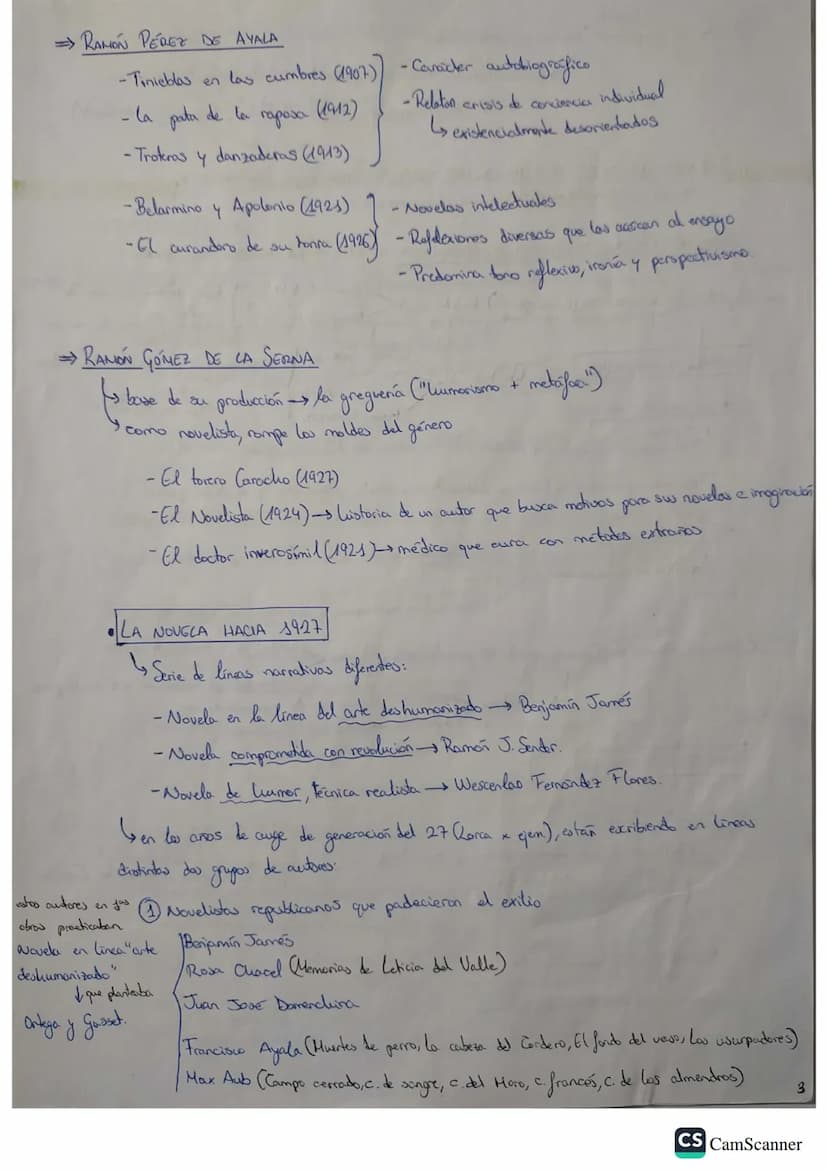 ⇒ RAMÓN PÉREZ DE AYALA
- Tinieblas en las cumbres (1907)
- La pata de la raposa (1912)
- Troteras y danzaderas (1913)
- Carácter autobiográfico
- Relatan crisis de conciencia individual
↳ existencialmente desorientados
- Belarmino y Apolonio (1921)
- El curandero de su honra (1926)
- Novelas intelectuales
- Reflexiones diversas que las acercan al ensayo
- Predomina tono reflexivo, ironía y perspectivismo
⇒ RAMÓN GÓMEZ DE LA SERNA
↳ base de su producción → la greguería ("humorismo + metáfora")
↳ como novelista, rompe los moldes del género
- El torero Caracho (1927)
- El Novelista (1924) → historia de un autor que busca motivos para sus novelas e imaginación
- El doctor inverosímil (1921) → médico que cura con métodos extraños
• LA NOVELA HACIA 1927
↳ Serie de líneas narrativas diferentes:
- Novela en la línea del arte deshumanizado → Benjamín Jarnés
- Novela comprometida con revolución → Ramón J. Sender.
- Novela de humor, técnica realista → Wescenlao Fernández Flores.
↳ en los años de auge de generación del 27 (Lorca x ejem), están escribiendo en líneas
distintas dos grupos de autores:
① Novelistas republicanos que padecieron el exilio
estos autores en sus
obras practicaban
Novela en línea "arte
deshumanizado"
↓ que planteaba
Ortega y Gasset.
Benjamín Jarnés
Rosa Chacel (Memorias de Leticia del Valle)
Juan José Domenchina
Francisco Ayala (Muertes de perro, La cabeza del Cordero, El fondo del vaso, Los usurpadores)
Max Aub (Campo cerrado, c. de sangre, c. del Moro, c. francés, c. de los almendros)
3
CS CamScanner